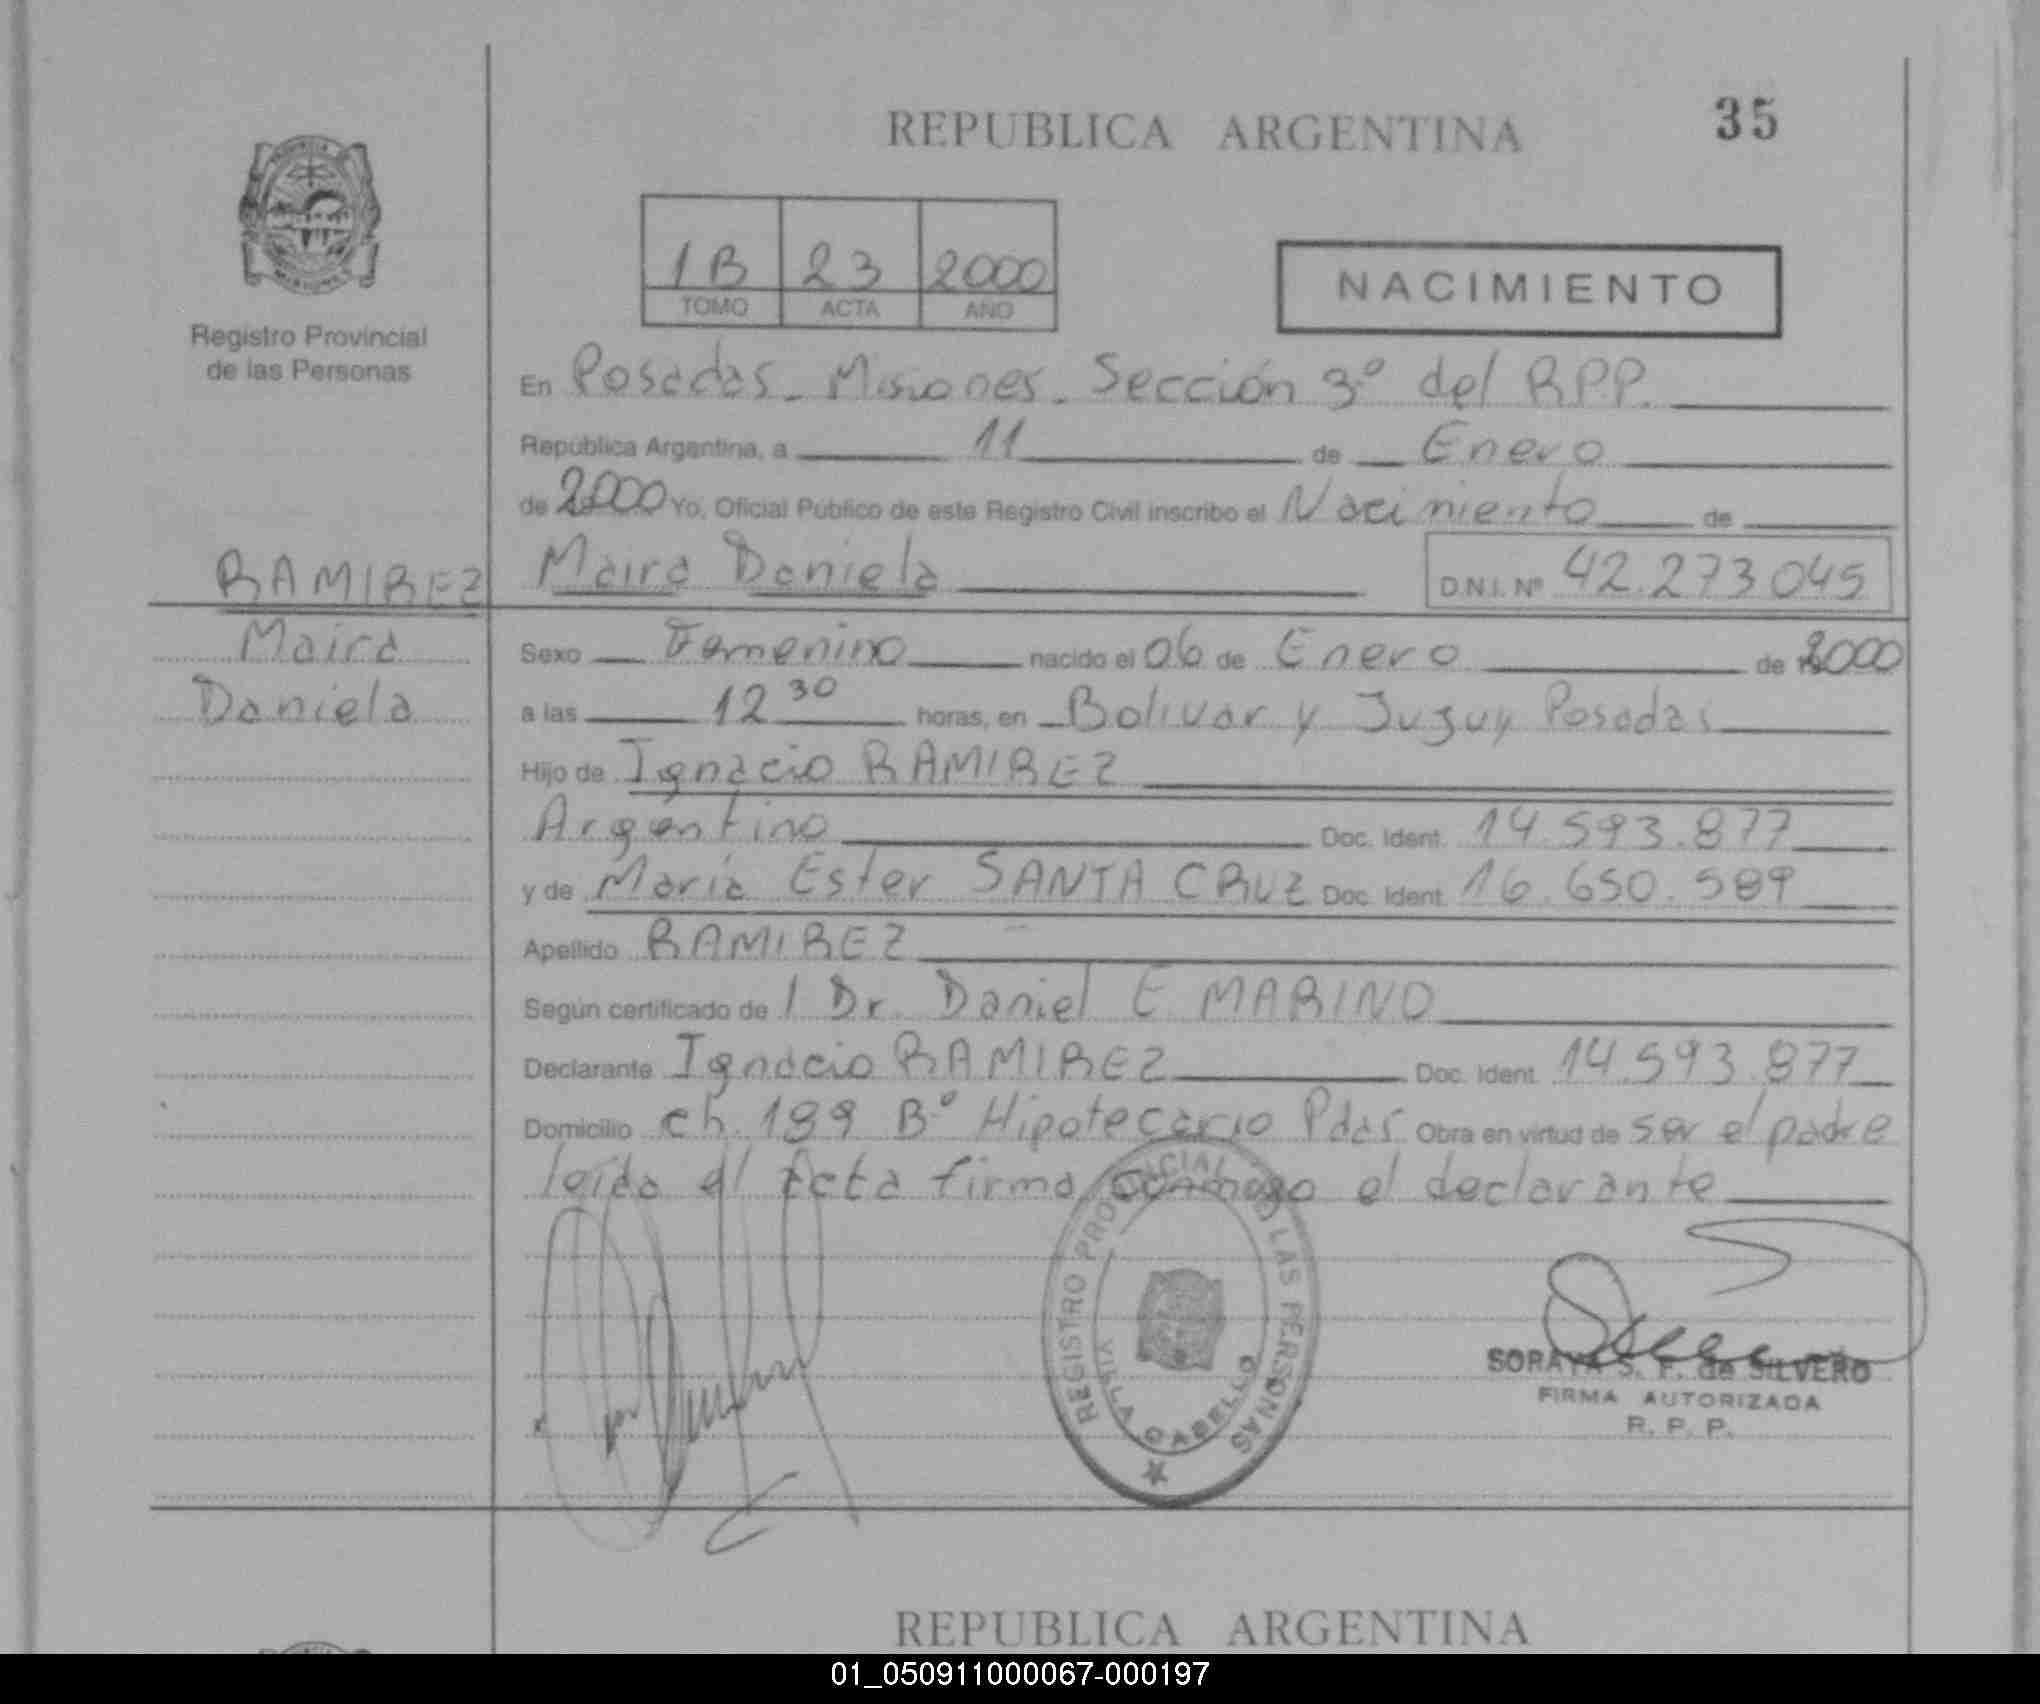 REPUBLICA ARGENTINA
35
Registro Provincial
de las Personas
1B 23 2000
TOMO ACTA AÑO
NACIMIENTO
En Posadas - Misiones - Sección 3º del R.P.P.
República Argentina, a 11 de Enero
de 2000 Yo, Oficial Público de este Registro Civil inscribo el Nacimiento de
RAMIREZ Maira Daniela D.N.I. Nº 42.273.045
Maira
Daniela
Sexo Femenino nacido el 06 de Enero de 2000
a las 12 30 horas, en Bolivar y Jujuy Posadas
Hijo de Ignacio RAMIREZ
Argentino Doc. Ident. 14.593.877
y de María Ester SANTA CRUZ Doc. Ident. 16.650.589
Apellido RAMIREZ
Según certificado de 1 Dr. Daniel E MARINO
Declarante Ignacio RAMIREZ Doc. Ident. 14.593.877
Domicilio ch. 199 Bº Hipotecario Pdas. Obra en virtud de ser el padre
leida el Acta firma conmigo el declarante
REGISTRO PROVINCIAL DE LAS PERSONAS
VILLA CABELLO
SORAYA S. F. de SILVERO
FIRMA AUTORIZADA
R. P. P.
REPUBLICA ARGENTINA
01_050911000067-000197